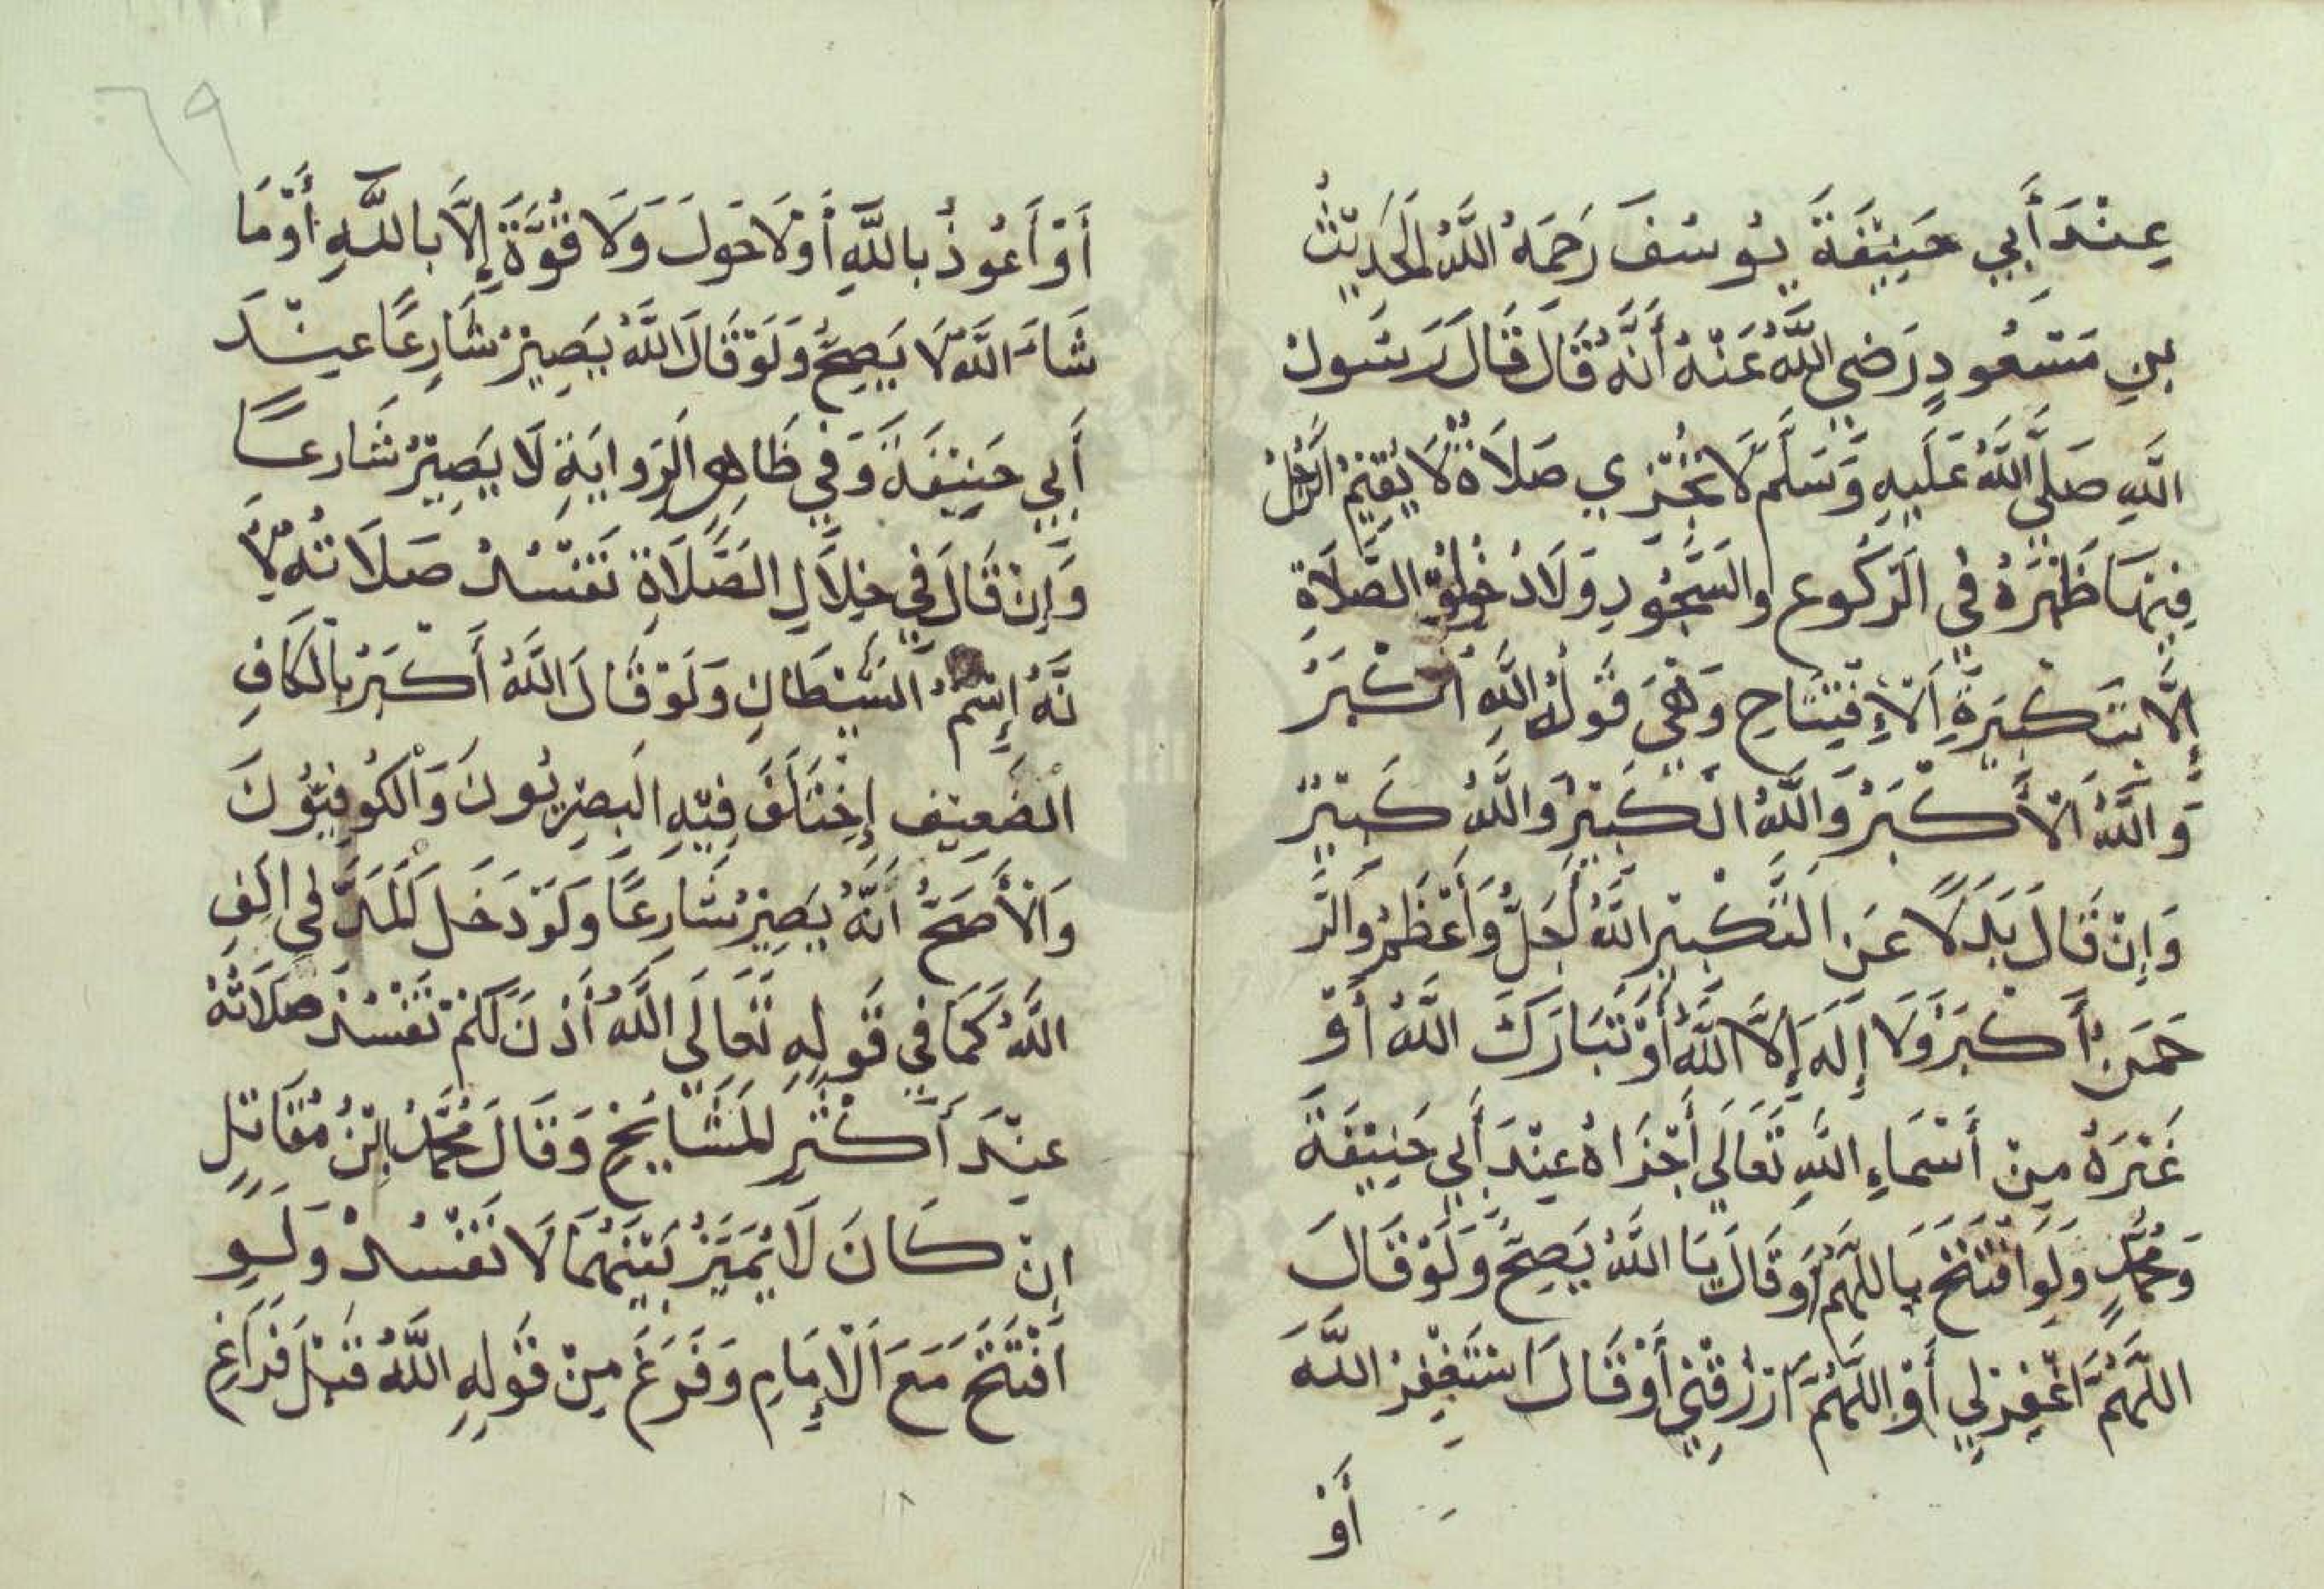 عِنْدَ أَبِي حَنِيْفَةَ يُوسُفَ رَحِمَهُ اللَّهُ الْحَدِيْثُ
بنِ مَسْعُودٍ رَضِيَ اللَّهُ عَنْهُ أَنَّهُ قَالَ قَالَ رَسُولُ
اللَّهِ صَلَّي اللَّهُ عَلَيهِ وَسَلَّمَ لَا تُجْزِي صَلَاةٌ لَا يُقِيْمُ الرَّجُلُ
فِيْهَا ظَهْرَهُ فِي الرُّكُوعِ والسُّجُودِ وَلَا دُخُولَ الصَّلَاةِ
إِلَّا بِتَكْبِيْرَةِ الْاِفْتِتَاحِ وَهْيَ قَولُهُ اللَّهِ أَكْبَرُ
وَاللَّهُ الْأَكْبَرُ وَاللَّهُ الْكَبِيْرُ وَاللَّهُ كَبِيْرٌ
وَإِنْ قَالَ بَدَلًا عَنِ التَّكْبِيْرِ اللَّهُ أَجَلُّ وَأَعْظَمُ وَالرَّ
حْمَنُ أَكْبَرُ وَلَا إِلَهَ إِلَّا اللَّهُ أَوْ تَبَارَكَ اللَّهُ أَوْ
غَيْرَهُ مِنْ أَسْمَاءِ اللَّهِ تَعَالَي أَجْزَاهُ عِنْدَ أَبِي حَنِيْفَةَ
وَمُحَمَّدٍ وَلَوِ افْتَتَحَ بِاللَّهُمَّ أَوْ قَالَ يَا اللَّهُ يَصِحُّ وَلَوْ قَالَ
اللَّهُمَّ اغْفِرْلِي أَوْ اللَّهُمَّ ارْزُقْنِي أَوْ قَالَ اسْتَغْفِرُ اللَّهَ
أَوْ
٦٩
أَوْ أَعُوذُ بِاللَّهِ أَوْ لَا حَولَ وَلَا قُوَّةَ إِلَّا بِاللَّهِ أَوْ مَا
شَاءَ اللَّهُ لَا يَصِحُّ وَلَوْ قَالَ اللَّهُ يَصِيْرُ شَارِعًا عِنْدَ
أَبِي حَنِيْفَةَ وَفِي ظَاهِرِ الرِّوَايَةِ لَا يَصِيْرُ شَارِعًا
وَإِنْ قَالَ فِي خِلَالِ الصَّلَاةِ تَفْسُدُ صَلَاتُهُ لِأَ
نَّهُ إِسْمُ الشَّيْطَانِ وَلَوْ قَالَ اللَّهُ أَكْبَرُ بِالْكَافِ
الضَعِيْفِ إِخْتَلَفَ فِيْهِ الْبَصْرِيُونَ وَالْكُوفِيُّونَ
وَالْأَصَحُّ أَنَّهُ يَصِيْرُ شَارِعًا وَلَوْ دَخَلَ الْمَدَّ فِي اَلِفِ
اللَّهُ كَمَا فِي قَولِهِ تَعَالَي اللَّهُ أَذِنَ لَكُمْ تَفْسُدُ صَلَاتُهُ
عِنْدَ أَكْثَرِ الْمَشَايَخِ وَقَالَ مُحَمَّدُ ابْنُ مُقَاتِلٍ
اِنْ كَانَ لَا يُمَيِّزُ بَيْنَهُمَا لَا تَفْسُدْ وَلَوِ
افْتَتَحَ مَعَ الْإِمَامِ وَفَرَغَ مِنْ قَولِهِ اللَّهُ قَبْلَ فَرَاغِ